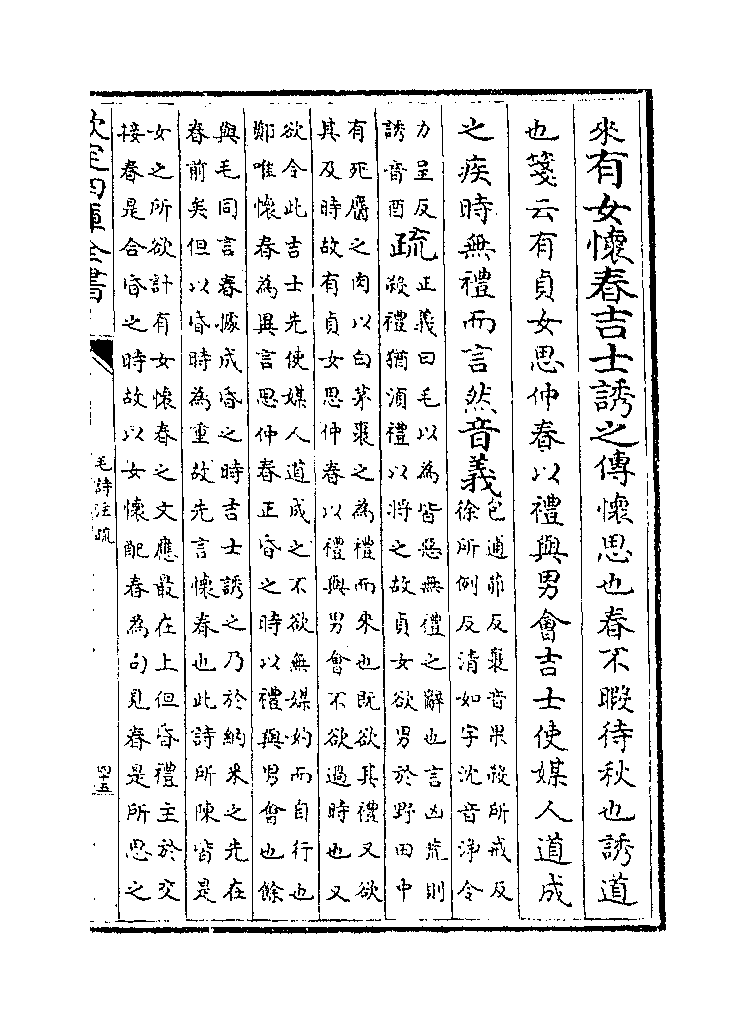 來有女懷春吉士誘之傳懷思也春不暇待秋也誘道
也箋云有貞女思仲春以禮與男會吉士使媒人道成
之疾時無禮而言然音義包逋茆反裹音果殺所戒反
徐所例反清如字沈音淨令
力呈反
誘音酉
疏正義曰毛以為皆惡無禮之辭也言凶荒則
殺禮猶湏禮以將之故貞女欲男於野田中
有死麕之肉以白茅裹之為禮而來也既欲其禮又欲
其及時故有貞女思仲春以禮與男會不欲過時也又
欲令此吉士先使媒人道成之不欲無媒妁而自行也
鄭唯懷春為異言思仲春正昏之時以禮與男會也餘
與毛同言春據成昏之時吉士誘之乃於納采之先在
春前矣但以昏時為重故先言懷春也此詩所陳皆是
女之所欲計有女懷春之文應最在上但昏禮主於交
接春是合昏之時故以女懷配春為句見春是所思之
欽定四庫全書
毛詩注疏
四十五